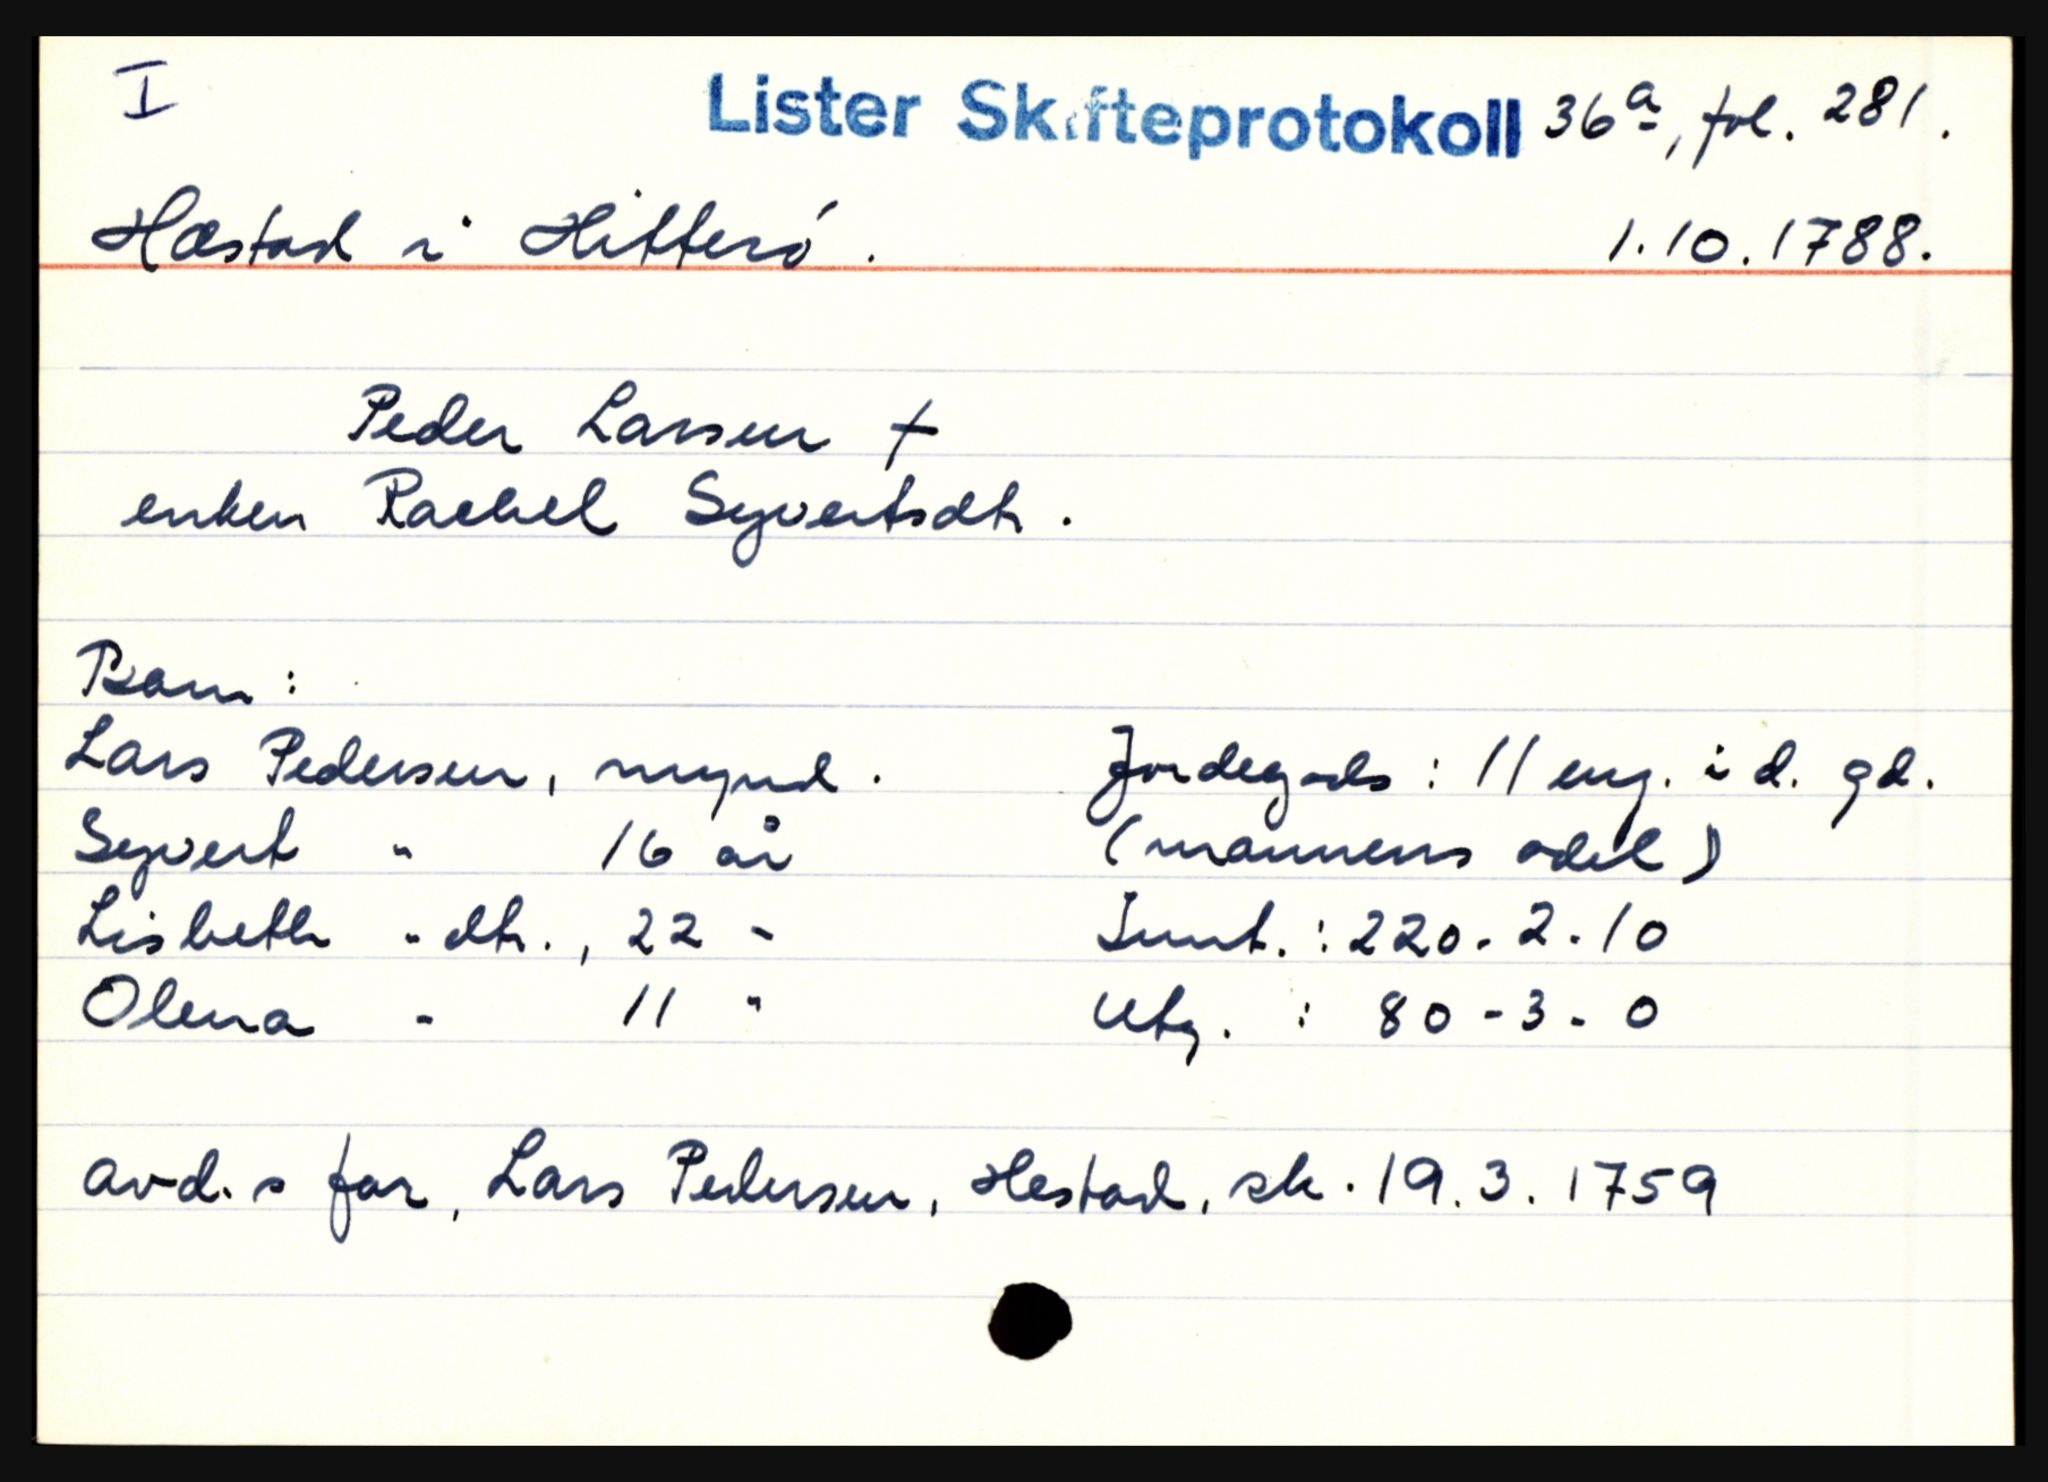 I
Lister Skifteprotokoll 36a, fol. 281.
Hæstad i Hitterö. 1.10.1788.
Peder Larsen †
enken Rachel Syvertsdtr.
Barn:
Lars Pedersen, mynd. Jordegods: 11 eng. i d. gd.
Syvert " 16 år (mannens odel)
Lisbeth " dtr., 22 " Innt.: 220-2-10
Olena " 11 " Utg.: 80-3-0
avd. s far, Lars Pedersen, Hestad, sk. 19.3.1759